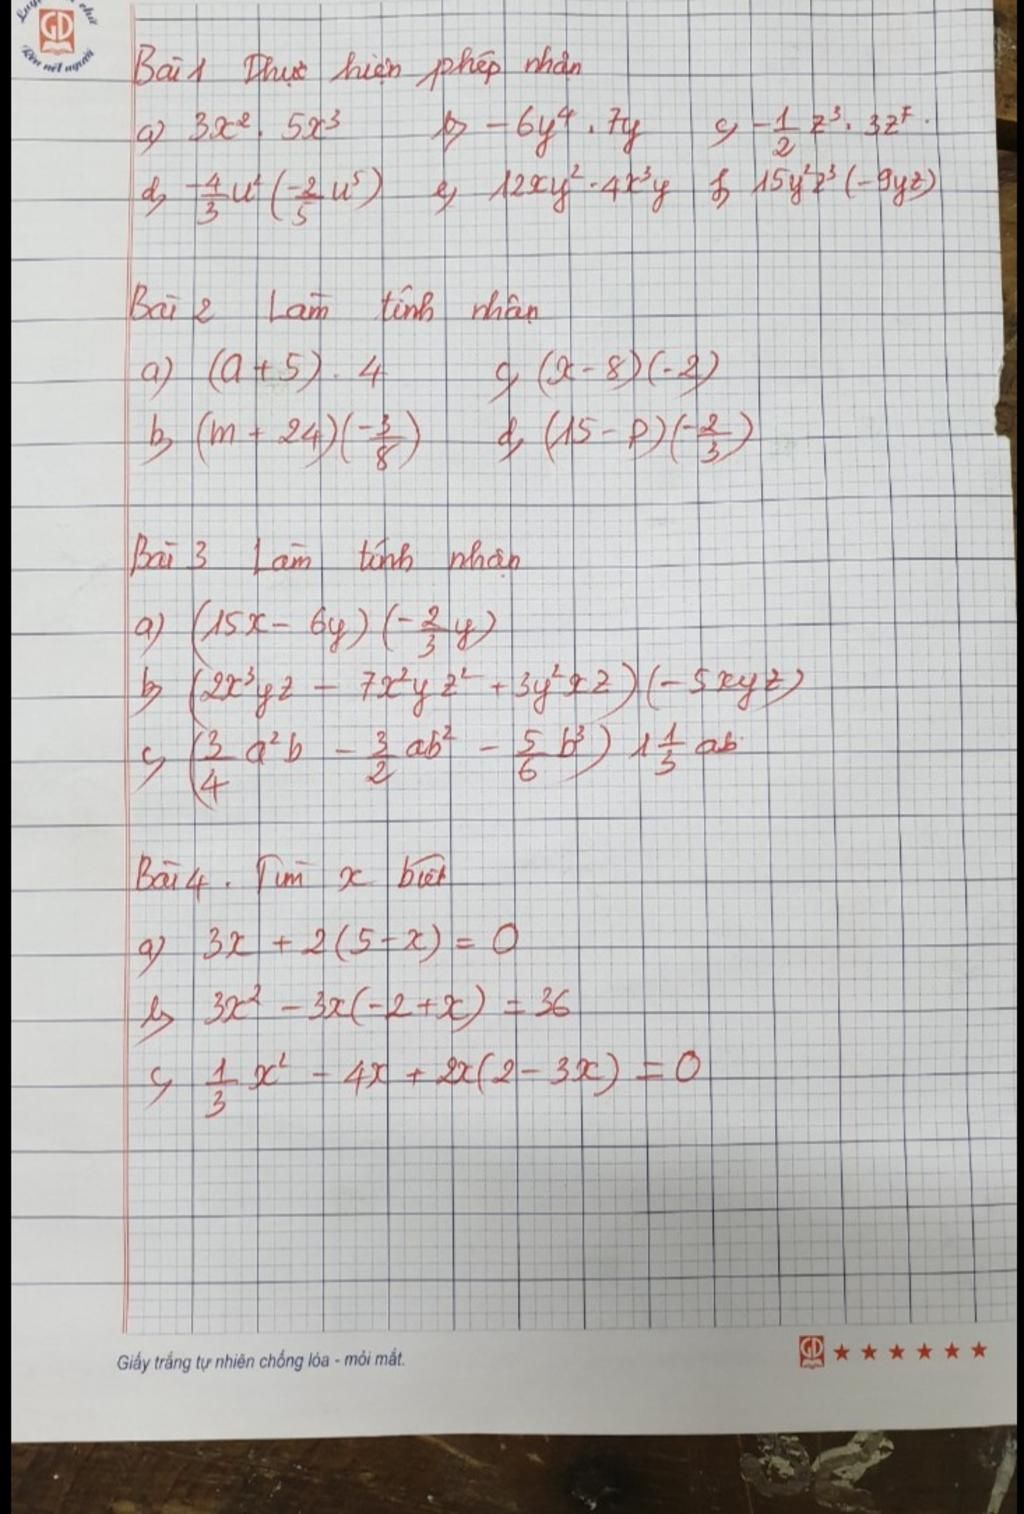 GD
Rèn nết người
Bài 1 Thực hiện phép nhân
a) 3x². 5x³ b) -6y⁴. 7y c) -1/2 z³. 3z⁷.
d) -4/3 u⁴ (-2/5 u⁵) e) 12xy² · 4x³y f) 15y²z³ (-9yz)
Bài 2 Làm tính nhân
a) (a + 5) . 4 c) (x - 8)(-2)
b) (m + 24)(-3/8) d) (15 - p)(-2/3)
Bài 3 Làm tính nhân
a) (15x - 6y)(-2/3 y)
b) (2x³yz - 7x²yz² + 3y²xz)(-5xyz)
c) (3/4 a²b - 3/2 ab² - 5/6 b³) 1 1/3 ab
Bài 4. Tìm x biết
a) 3x + 2(5 - x) = 0
b) 3x² - 3x(-2 + x) = 36
c) 1/3 x² - 4x + 2x(2 - 3x) = 0
Giấy trắng tự nhiên chống lóa - mỏi mắt.
GD